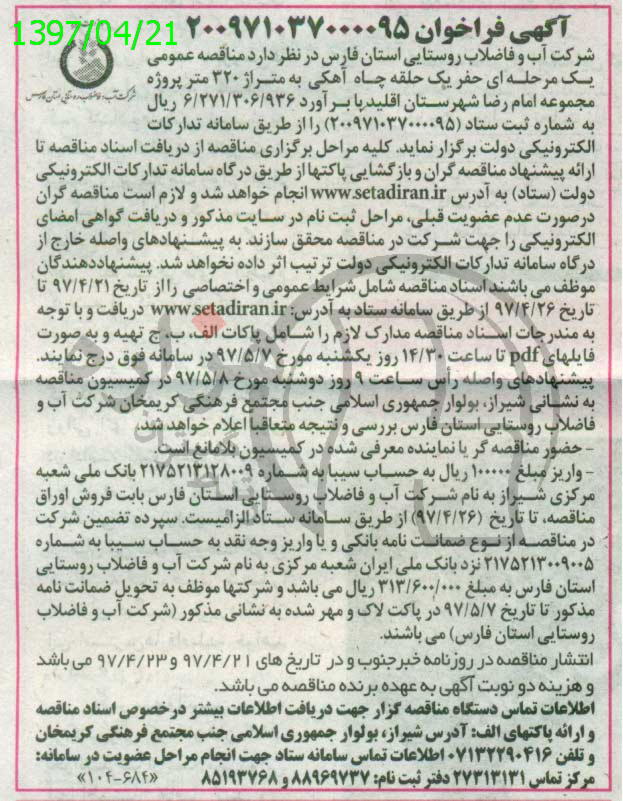 1397/04/21
آگهی فراخوان ۲۰۰۹۷۱۰۳۷۰۰۰۰۹۵
شرکت آب و فاضلاب روستایی استان فارس در نظر دارد مناقصه عمومی
یک مرحله ای حفر یک حلقه چاه آهکی به متراژ ۳۲۰ متر پروژه
مجموعه امام رضا شهرستان اقلید با برآورد ۶/۲۷۱/۳۰۶/۹۳۶ ریال
به شماره ثبت ستاد (۲۰۰۹۷۱۰۳۷۰۰۰۰۹۵) را از طریق سامانه تدارکات
شرکت آب و فاضلاب روستایی استان فارس
الکترونیکی دولت برگزار نماید. کلیه مراحل برگزاری مناقصه از دریافت اسناد مناقصه تا
ارائه پیشنهاد مناقصه گران و بازگشایی پاکتها از طریق درگاه سامانه تدارکات الکترونیکی
دولت (ستاد) به آدرس www.setadiran.ir انجام خواهد شد و لازم است مناقصه گران
درصورت عدم عضویت قبلی، مراحل ثبت نام در سایت مذکور و دریافت گواهی امضای
الکترونیکی را جهت شرکت در مناقصه محقق سازند. به پیشنهادهای واصله خارج از
درگاه سامانه تدارکات الکترونیکی دولت ترتیب اثر داده نخواهد شد. پیشنهاددهندگان
موظف می باشند اسناد مناقصه شامل شرایط عمومی و اختصاصی را از تاریخ ۹۷/۴/۲۱ تا
تاریخ ۹۷/۴/۲۶ از طریق سامانه ستاد به آدرس: www.setadiran.ir دریافت و با توجه
به مندرجات اسناد مناقصه مدارک لازم را شامل پاکات الف، ب، ج تهیه و به صورت
فایلهای pdf تا ساعت ۱۴/۳۰ روز یکشنبه مورخ ۹۷/۵/۷ در سامانه فوق درج نمایند.
پیشنهادهای واصله رأس ساعت ۹ روز دوشنبه مورخ ۹۷/۵/۸ در کمیسیون مناقصه
به نشانی شیراز، بولوار جمهوری اسلامی جنب مجتمع فرهنگی کریمخان شرکت آب و
فاضلاب روستایی استان فارس بررسی و نتیجه متعاقبا اعلام خواهد شد.
- حضور مناقصه گر یا نماینده معرفی شده در کمیسیون بلامانع است.
- واریز مبلغ ۱۰۰۰۰۰ ریال به حساب سیبا به شماره ۲۱۷۵۲۱۳۱۲۸۰۰۹ بانک ملی شعبه
مرکزی شیراز به نام شرکت آب و فاضلاب روستایی استان فارس بابت فروش اوراق
مناقصه، تا تاریخ (۹۷/۴/۲۶) از طریق سامانه ستاد الزامیست. سپرده تضمین شرکت
در مناقصه از نوع ضمانت نامه بانکی و یا واریز وجه نقد به حساب سیبا به شماره
۲۱۷۵۲۱۳۰۰۹۰۰۵ نزد بانک ملی ایران شعبه مرکزی به نام شرکت آب و فاضلاب روستایی
استان فارس به مبلغ ۳۱۳/۶۰۰/۰۰۰ ریال می باشد و شرکتها موظف به تحویل ضمانت نامه
مذکور تا تاریخ ۹۷/۵/۷ در پاکت لاک و مهر شده به نشانی مذکور (شرکت آب و فاضلاب
روستایی استان فارس) می باشند.
انتشار مناقصه در روزنامه خبرجنوب و در تاریخ های ۹۷/۴/۲۱ و ۹۷/۴/۲۳ می باشد
و هزینه دو نوبت آگهی به عهده برنده مناقصه می باشد.
اطلاعات تماس دستگاه مناقصه گزار جهت دریافت اطلاعات بیشتر درخصوص اسناد مناقصه
و ارائه پاکتهای الف: آدرس شیراز، بولوار جمهوری اسلامی جنب مجتمع فرهنگی کریمخان
و تلفن ۰۷۱۳۲۲۹۰۴۱۶ اطلاعات تماس سامانه ستاد جهت انجام مراحل عضویت در سامانه:
مرکز تماس ۲۷۳۱۳۱۳۱ دفتر ثبت نام: ۸۸۹۶۹۷۳۷ و ۸۵۱۹۳۷۶۸ «۱۰۴-۶۸۴»